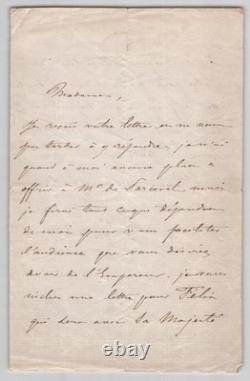 Madame,
Je reçois votre lettre, et ne veux
pas tarder à y répondre, je n'ai
quant à moi aucune place a
offrir à Mr de mais
je ferai tout ce qui dépendra
de moi pour faciliter
l'audience que vous désirez
avoir de l'Empereur, je vous
une lettre pour Félix
qui sera avec Sa Majesté
© ebay withKarl